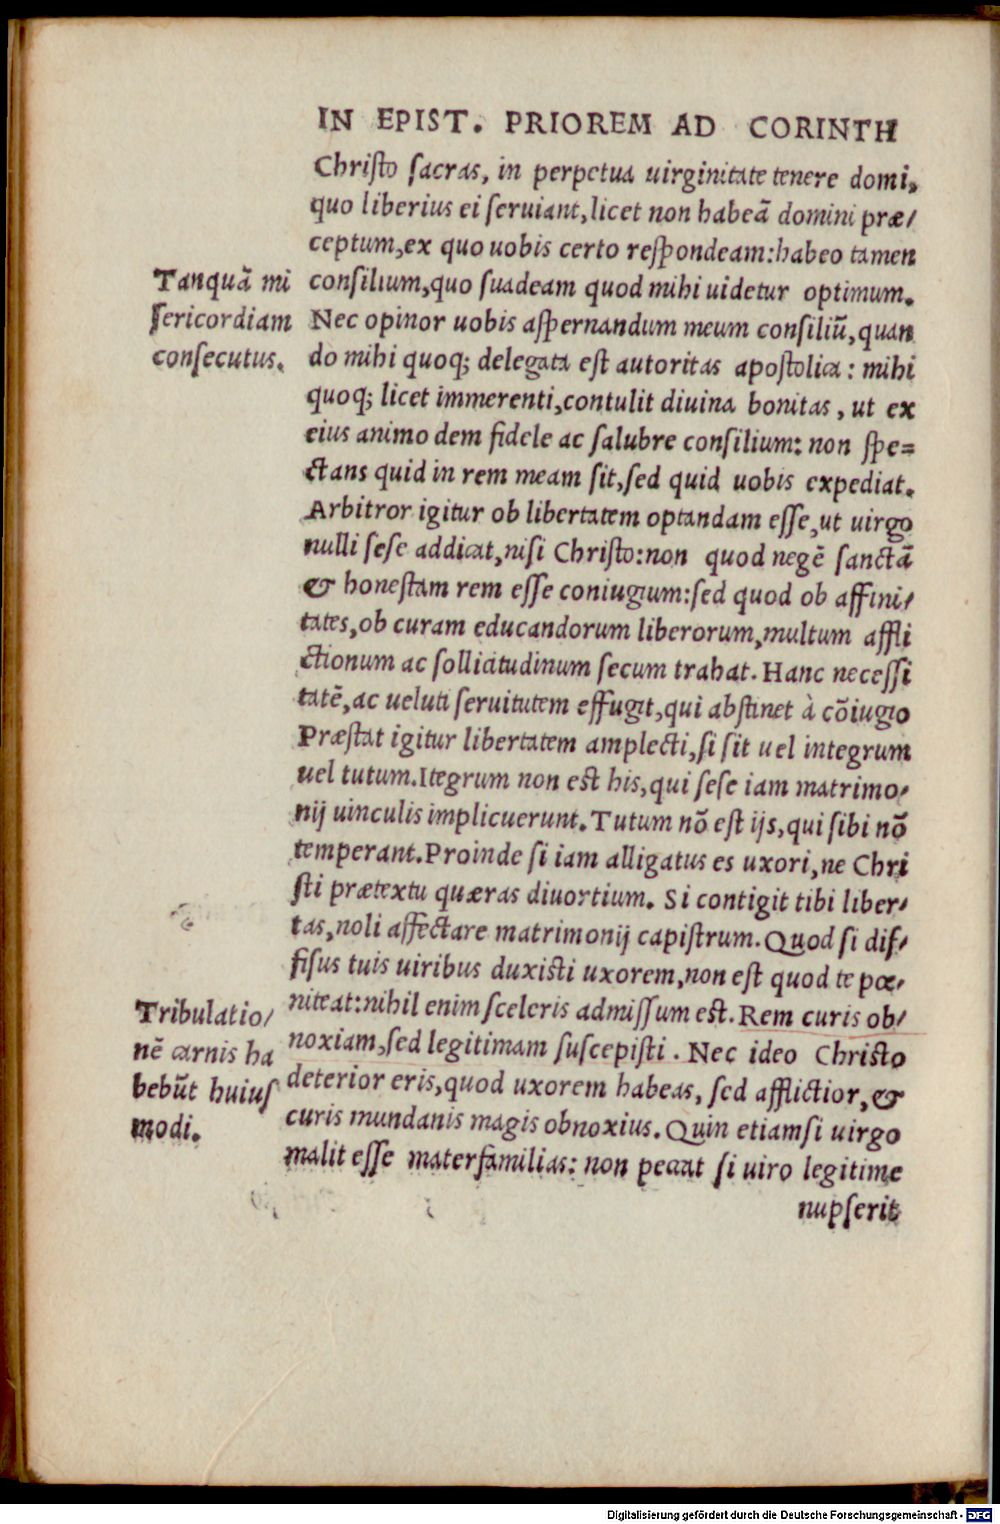 IN EPIST. PRIOREM AD CORINTH
Christo sacras, in perpetua uirginitate tenere domi,
quo liberius ei seruiant,licet non habeā domini præ/
ceptum,ex quo uobis certo respondeam:habeo tamen
consilium,quo suadeam quod mihi uidetur optimum.
Nec opinor uobis aspernandum meum consiliū,quan
do mihi quoq; delegata est autoritas apostolica: mihi
quoq; licet immerenti,contulit diuina bonitas, ut ex
eius animo dem fidele ac salubre consilium: non spe=
ctans quid in rem meam sit,sed quid uobis expediat.
Arbitror igitur ob libertatem optandam esse,ut uirgo
nulli sese addicat,nisi Christo:non quod negē sanctā
& honestam rem esse coniugium:sed quod ob affini/
tates,ob curam educandorum liberorum,multum affli
ctionum ac sollicitudinum secum trahat. Hanc necessi
tatē,ac ueluti seruitutem effugit,qui abstinet à cōiugio
Præstat igitur libertatem amplecti,si sit uel integrum
uel tutum.Itegrum non est his,qui sese iam matrimo/
nij uinculis implicuerunt.Tutum nō est ijs,qui sibi nō
temperant.Proinde si iam alligatus es uxori,ne Chri
sti prætextu quæras diuortium. Si contigit tibi liber/
tas,noli affectare matrimonij capistrum.Quod si dif/
fisus tuis uiribus duxisti uxorem,non est quod te pœ/
niteat:nihil enim sceleris admissum est.Rem curis ob/
noxiam,sed legitimam suscepisti. Nec ideo Christo
deterior eris,quod uxorem habeas, sed afflictior,&
curis mundanis magis obnoxius.Quin etiamsi uirgo
malit esse materfamilias: non peccat si uiro legitime
nupserit
Tanquā mi
sericordiam
consecutus.
Tribulatio/
nē carnis ha
bebūt huius
modi.
Digitalisierung gefördert durch die Deutsche Forschungsgemeinschaft - DFG